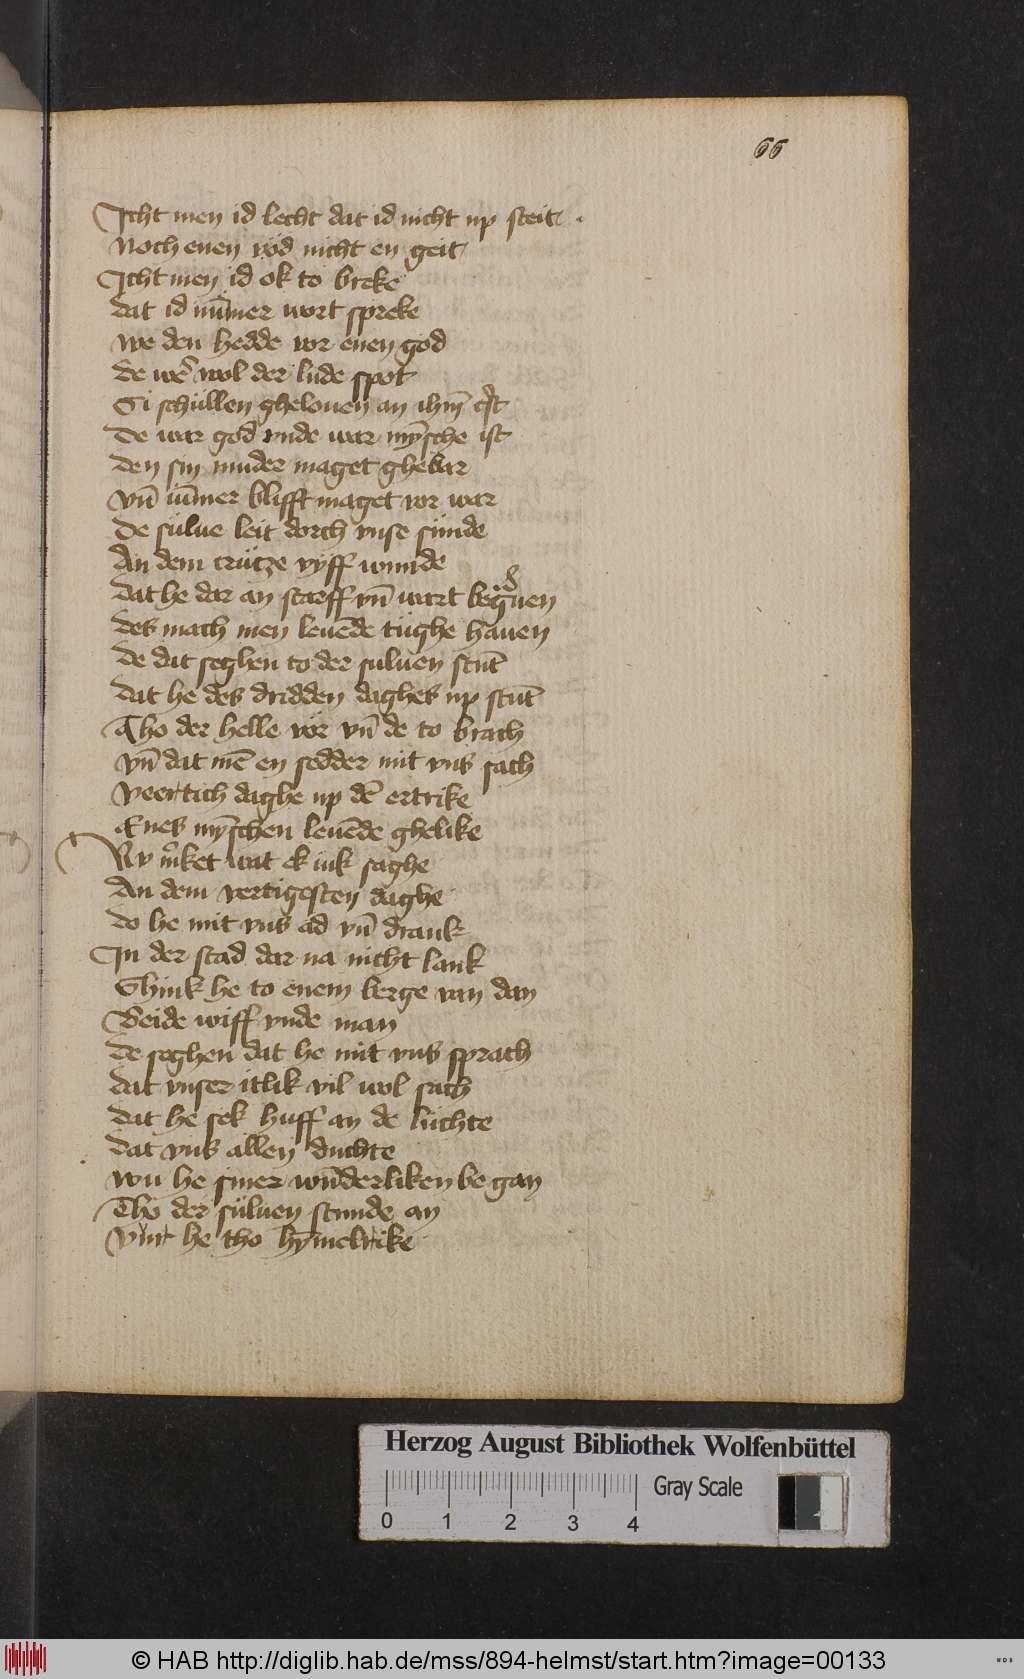 66
Icht men id lecht dat id nicht up steit .
Noch enen vod nicht en geit
Icht men id ok to breke
dat id nūmer wort spreke
we den hedde vor enen god
de we͛ wol der lude spot
Si schullen ghelouen an ihm̄ cr̄t
De war god vnde war mȳsche ist
den sin muder maget ghebar
vn̄ iūmer blifft maget vor war
De sulue leit dorch vnse sunde
An dem crutze vyff wunde
dat he dar an starff vn̄ wart begͣuen
des mach men leuēde tughe hauen
de dat seghen to der suluen stūt
dat he des dridden daghes up stūt
Tho der helle vor vn̄ de to brach
vn̄ dat mē en sedder mit vns sach
veertich daghe up dē ertrike
Enes mȳschen leuēde ghelike
Ny m͛ket wat ek iuk saghe
An dem vertigesten daghe
do he mit vns ad vn̄ drank
In der stad dar na nicht lank
Ghink he to enem berge van dan
Beide wiff vnde man
de seghen dat he mit vns sprach
dat vnser itlik vil wol sach
dat he sek huff an de luchte
dat vns allen duchte
wu he siner wūderliken be gan
Tho der suluen stunde an
Vůr he tho hȳmelrike
Herzog August Bibliothek Wolfenbüttel
Gray Scale
0 1 2 3 4
© HAB http://diglib.hab.de/mss/894-helmst/start.htm?image=00133